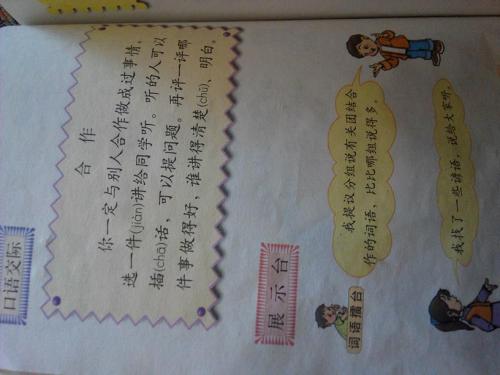 口语交际
合作
你一定与别人合作做成过事情，
选一件(jiàn)讲给同学听。听的人可以
插(chā)话，可以提问题。再评一评哪
件事做得好，谁讲得清楚(chǔ)、明白。
展示台
我提议分组说有关团结合
作的词语，比比哪组说得多。
词语擂台
我找了一些谚语，说给大家听。